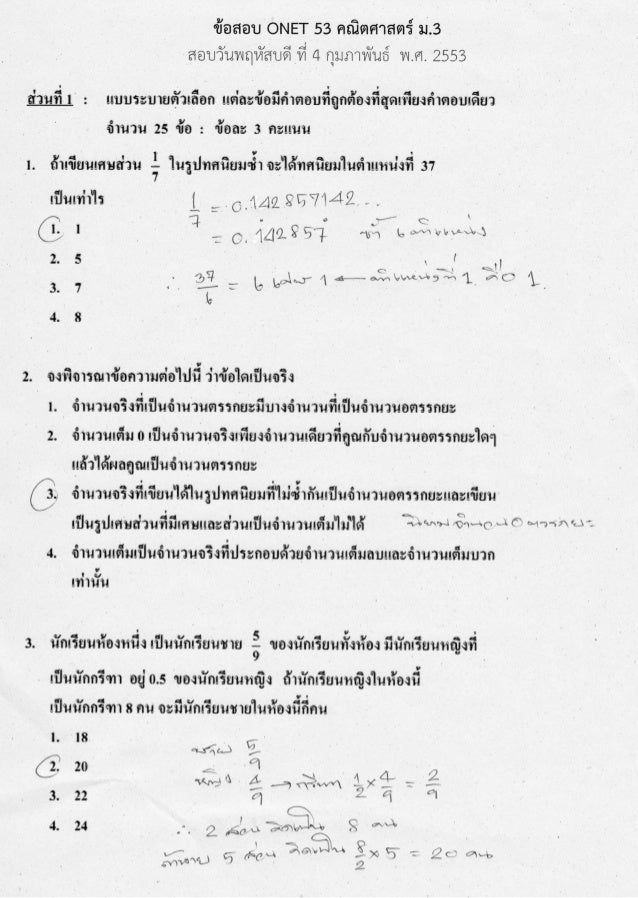 ข้อสอบ ONET 53 คณิตศาสตร์ ม.3
สอบวันพฤหัสบดี ที่ 4 กุมภาพันธ์ พ.ศ. 2553
ส่วนที่ 1 : แบบระบายตัวเลือก แต่ละข้อมีคำตอบที่ถูกต้องที่สุดเพียงคำตอบเดียว
จำนวน 25 ข้อ : ข้อละ 3 คะแนน
1. ถ้าเขียนเศษส่วน 1/7 ในรูปทศนิยมซ้ำ จะได้ทศนิยมในตำแหน่งที่ 37
เป็นเท่าไร
1/7 = 0.142857142...
1. 1
= 0.1̇42857̇ ซ้ำ 6 ตำแหน่ง
2. 5
3. 7
∴ 37/6 = 6 เศษ 1 ← ตำแหน่งที่ 1 คือ 1
4. 8
2. จงพิจารณาข้อความต่อไปนี้ ว่าข้อใดเป็นจริง
1. จำนวนจริงที่เป็นจำนวนตรรกยะมีบางจำนวนที่เป็นจำนวนอตรรกยะ
2. จำนวนเต็ม 0 เป็นจำนวนจริงเพียงจำนวนเดียวที่คูณกับจำนวนอตรรกยะใดๆ
แล้วได้ผลคูณเป็นจำนวนตรรกยะ
3. จำนวนจริงที่เขียนได้ในรูปทศนิยมที่ไม่ซ้ำกันเป็นจำนวนอตรรกยะและเขียน
เป็นรูปเศษส่วนที่มีเศษและส่วนเป็นจำนวนเต็มไม่ได้ นิยามจำนวนอตรรกยะ
4. จำนวนเต็มเป็นจำนวนจริงที่ประกอบด้วยจำนวนเต็มลบและจำนวนเต็มบวก
เท่านั้น
3. นักเรียนห้องหนึ่ง เป็นนักเรียนชาย 5/9 ของนักเรียนทั้งห้อง มีนักเรียนหญิงที่
เป็นนักกรีฑา อยู่ 0.5 ของนักเรียนหญิง ถ้านักเรียนหญิงในห้องนี้
เป็นนักกรีฑา 8 คน จะมีนักเรียนชายในห้องนี้กี่คน
1. 18
ชาย 5/9
2. 20
หญิง 4/9 → กรีฑา 1/2 × 4/9 = 2/9
3. 22
4. 24
∴ 2 ส่วน คิดเป็น 8 คน
ถ้าชาย 5 ส่วน คิดเป็น 8/2 × 5 = 20 คน